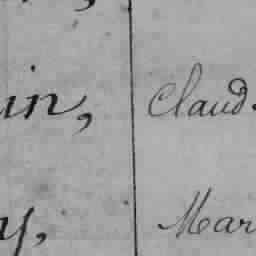 in, Claud
y, Mar